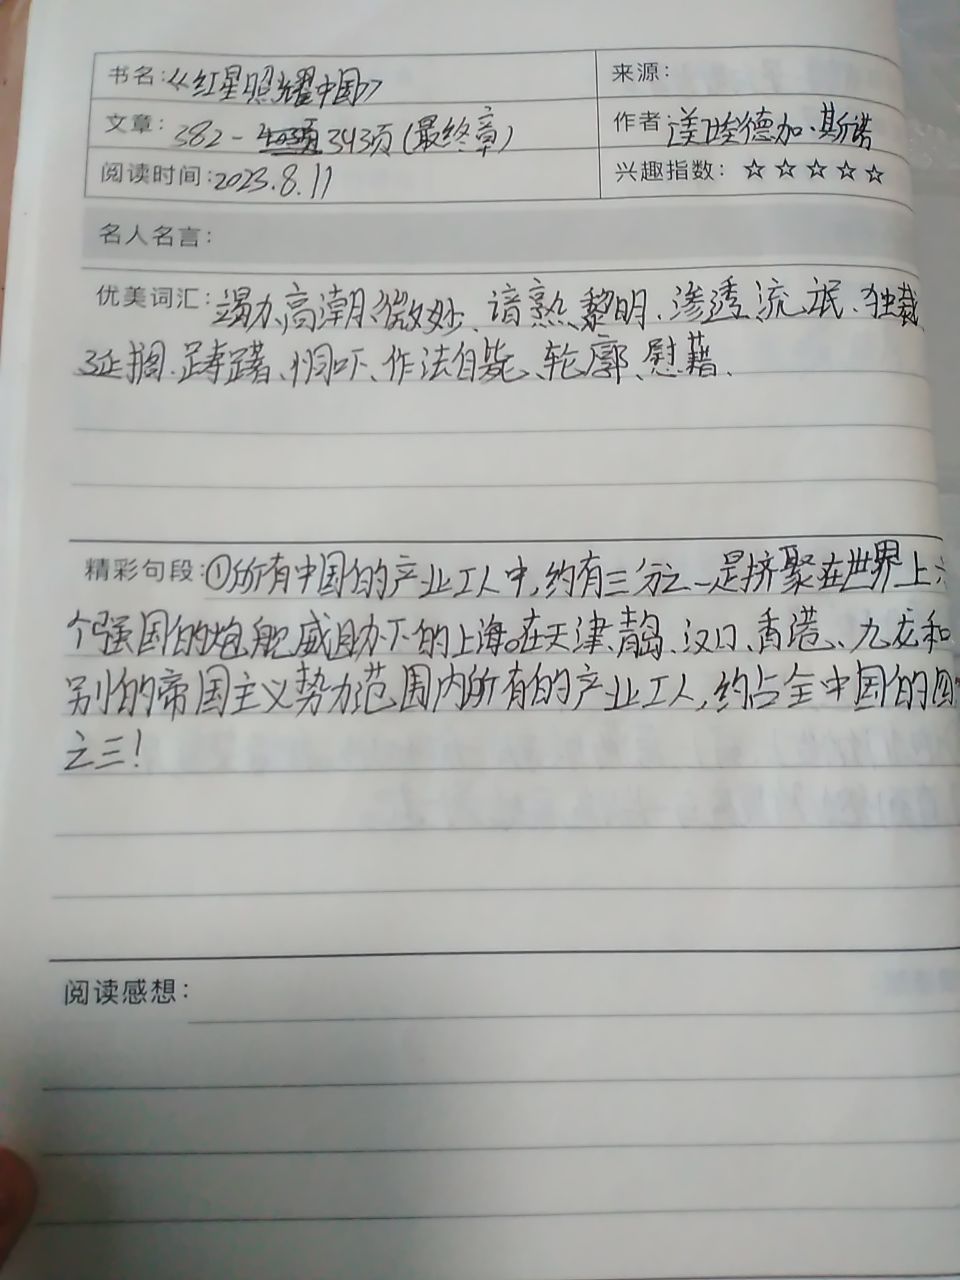 书名:《红星照耀中国》
来源:
文章:382-343项(最终章)
作者:[美]埃德加·斯诺
阅读时间:2023.8.11
兴趣指数:☆☆☆☆☆
名人名言:
优美词汇:竭力、高潮、微妙、谙熟、黎明、渗透、流氓、独裁
延搁、踌躇、恫吓、作法自毙、轮廓、慰藉、
精彩句段:①所有中国的产业工人中,约有三分之一是挤聚在世界上
个强国的炮舰威助下的上海。在天津、青岛、汉口、香港、九龙和
别的帝国主义势力范围内所有的产业工人,约占全中国的四
之三!
阅读感想: